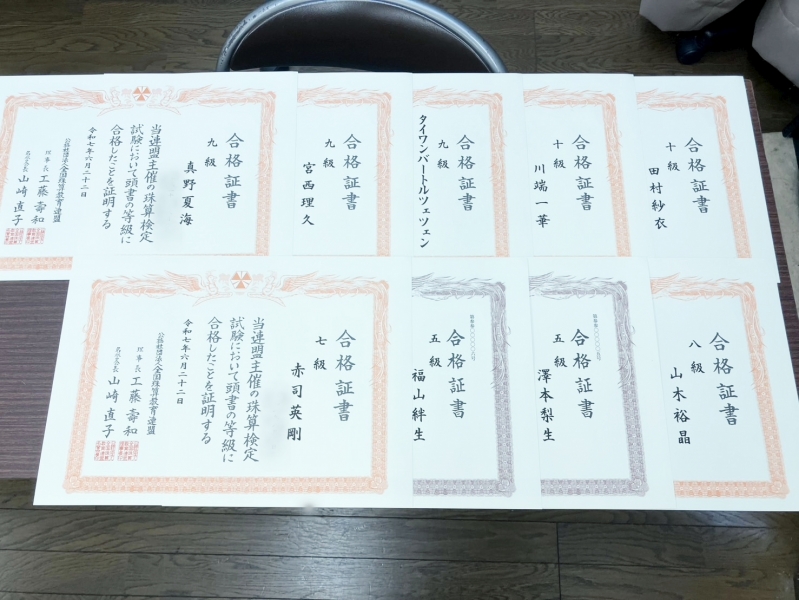 合格証書
十級
田村紗衣
合格証書
十級
川端一華
合格証書
九級
タイワンバートルツェツェン
合格証書
九級
宮西理久
合格証書
九級
真野夏海
当連盟主催の珠算検定
試験において頭書の等級に
合格したことを証明する
令和七年六月二十二日
公益社団法人全国珠算教育連盟
理事長 工藤壽和
山崎直子
合格証書
八級
山木裕晶
合格証書
五級
澤本梨生
合格証書
五級
福山絆生
合格証書
七級
赤司英剛
当連盟主催の珠算検定
試験において頭書の等級に
合格したことを証明する
令和七年六月二十二日
公益社団法人全国珠算教育連盟
理事長 工藤壽和
山崎直子